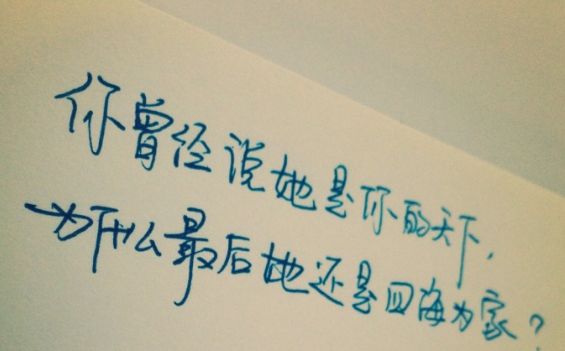 你曾经说她是你的天下，
为什么最后她还是四海为家？